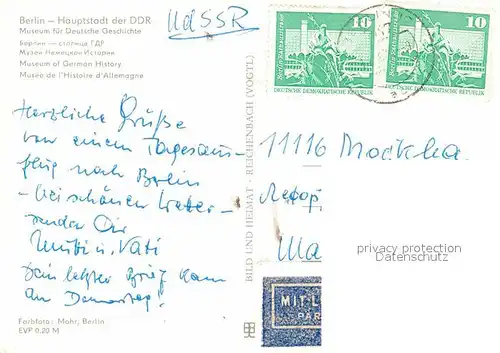 Berlin – Hauptstadt der DDR
Museum für Deutsche Geschichte
Берлин – столица ГДР
Музей Немецкой Истории
Museum of German History
Musée de l'Histoire d'Allemagne
UdSSR
10
DEUTSCHE DEMOKRATISCHE REPUBLIK
10
DEUTSCHE DEMOKRATISCHE REPUBLIK
Herzliche Grüße
von einem Tagesaus-
flug nach Berlin
– bei schönem Wetter –
senden Dir
Mutti u. Vati
Dein letzter Brief kam
am Donnerstag!
Farbfoto: Mohr, Berlin
EVP 0.20 M
BILD UND HEIMAT · REICHENBACH (VOGTL)
11116 Москва.
privacy protection
Datenschutz
MIT L
PAR